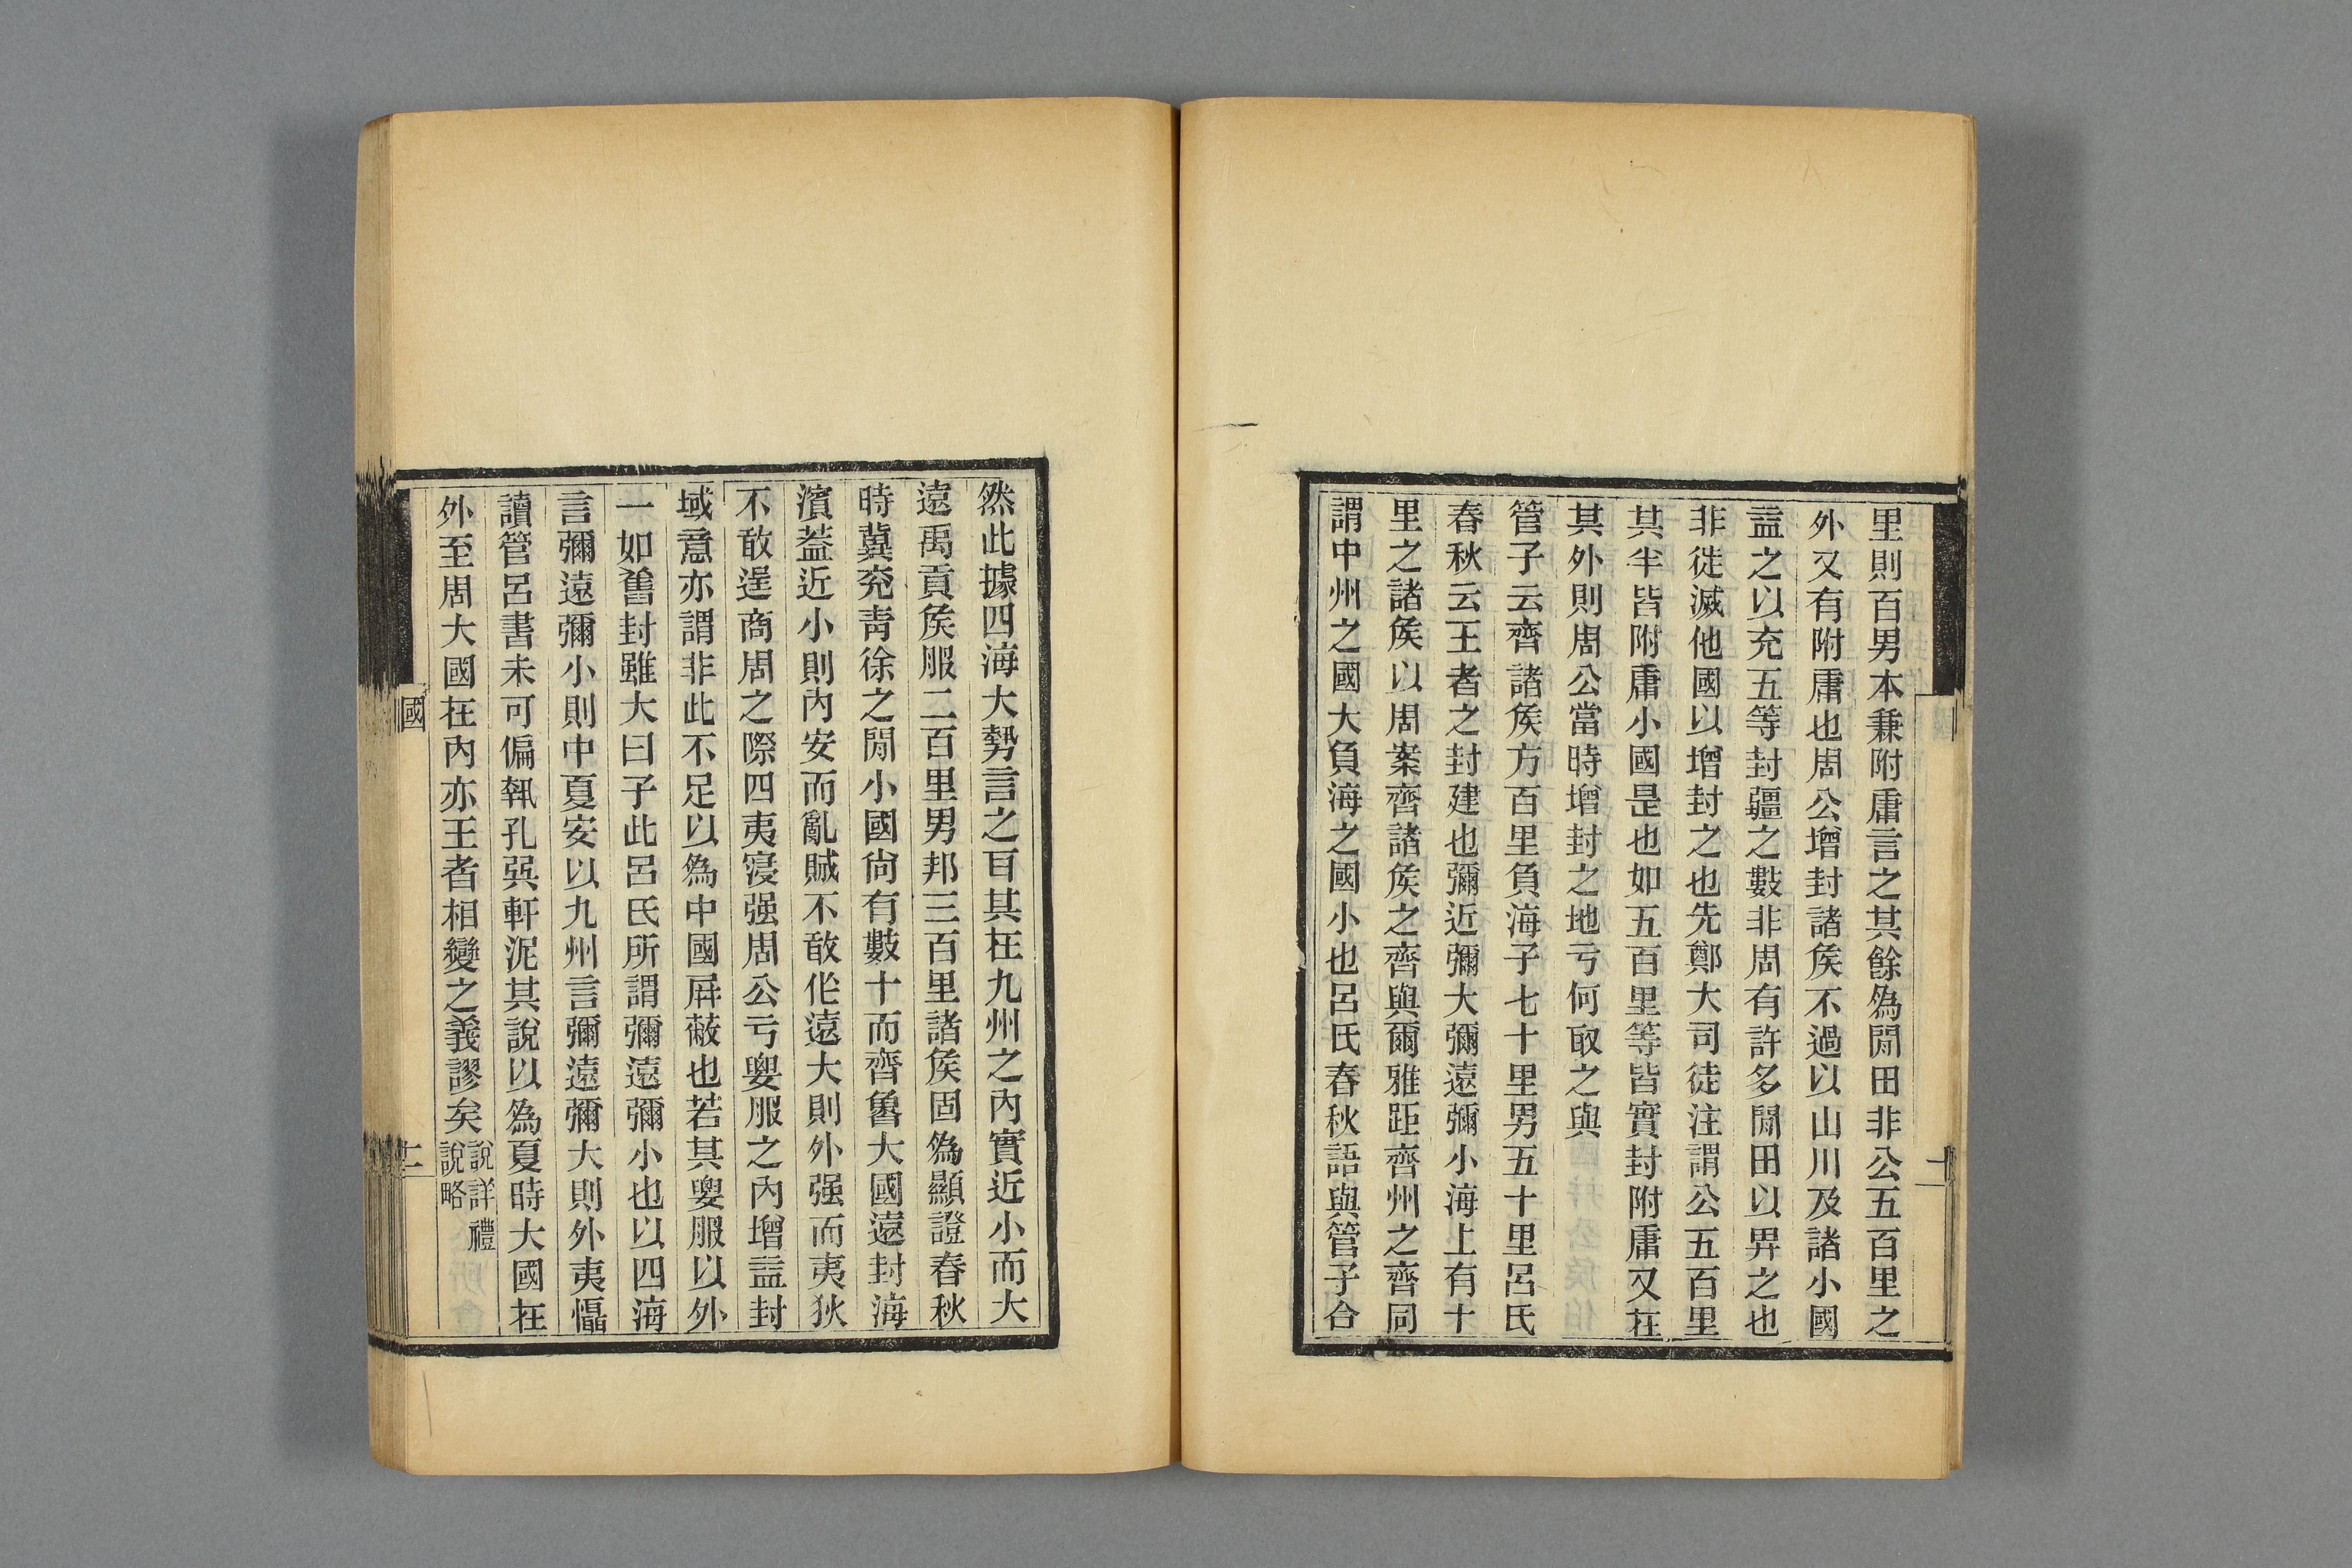 里則百男本兼附庸言之其餘爲閒田非公五百里之
外又有附庸也周公增封諸矦不過以山川及諸小國
益之以充五等封疆之數非周有許多閒田以畀之也
非徙滅他國以增封之也先鄭大司徒注謂公五百里
其半皆附庸小國是也如五百里等皆實封附庸又在
其外則周公當時增封之地亏何取之與
管子云齊諸矦方百里負海子七十里男五十里呂氏
春秋云王者之封建也彌近彌大彌遠彌小海上有十
里之諸矦以周案齊諸矦之齊與爾雅歫齊州之齊同
謂中州之國大負海之國小也呂氏春秋語與管子合
十
然此據四海大勢言之耳其在九州之內實近小而大
遠禹貢矦服二百里男邦三百里諸矦固爲顯證春秋
時冀兗靑徐之閒小國尙有數十而齊魯大國遠封海
濱葢近小則內安而亂賊不敢作遠大則外强而夷狄
不敢逞商周之際四夷寖强周公亏要服之內增益封
域意亦謂非此不足以爲中國屛蔽也若其要服以外
一如舊封雖大曰子此呂氏所謂彌遠彌小也以四海
言彌遠彌小則中夏安以九州言彌遠彌大則外夷懾
讀管呂書未可偏執孔巽軒泥其說以爲夏時大國在
外至周大國在內亦王者相變之義謬矣說詳禮說略
國
十一